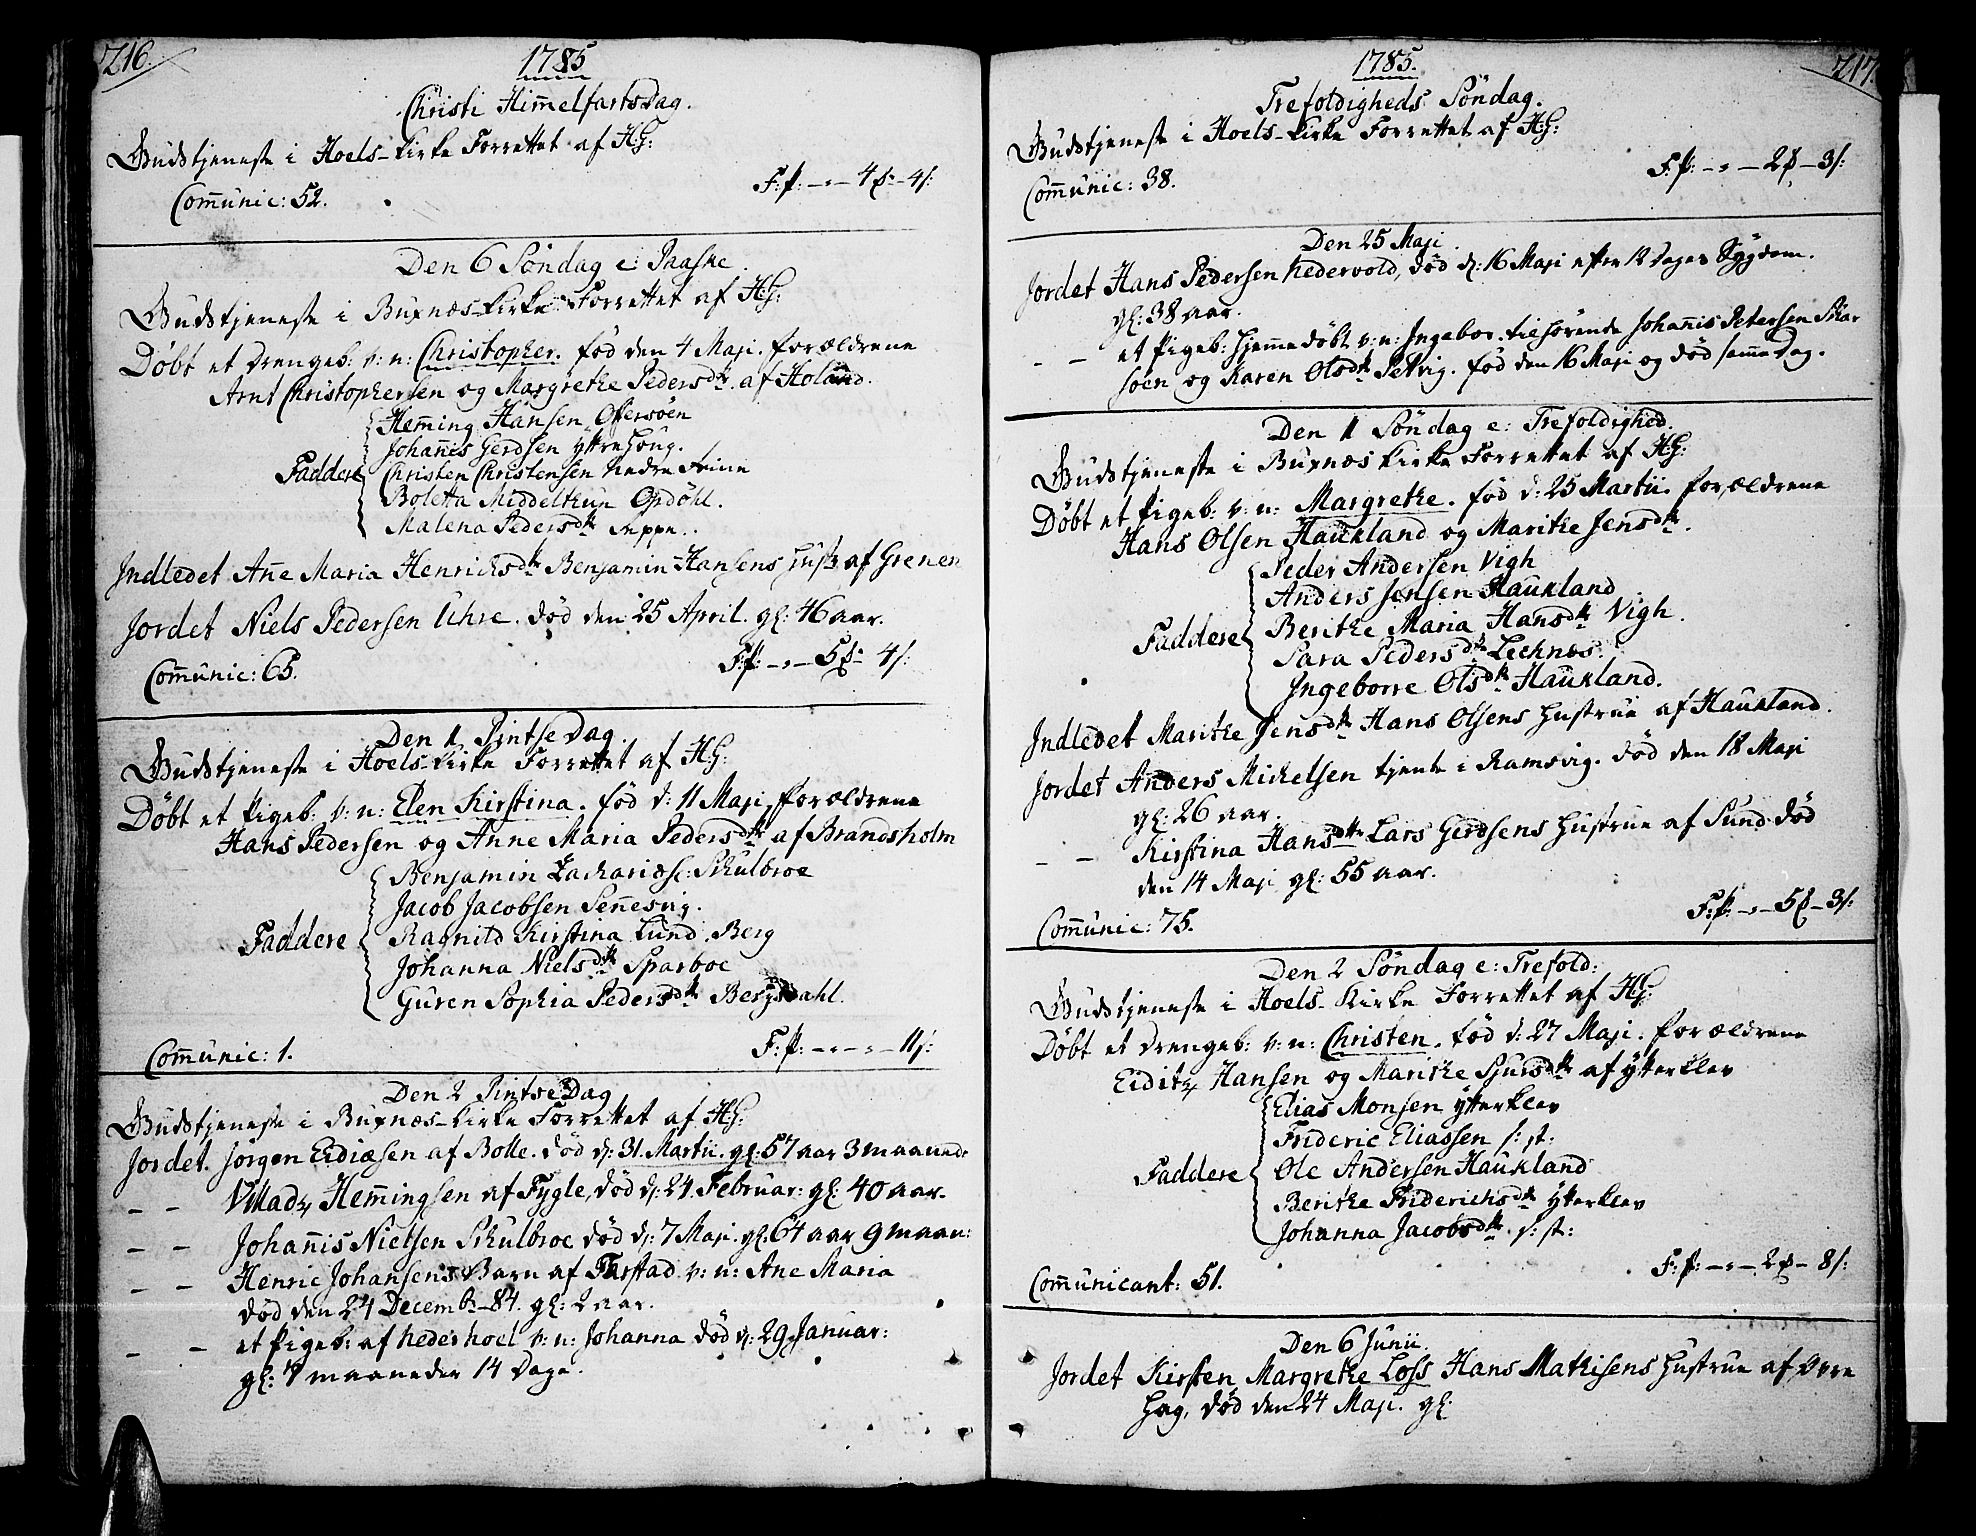 216.
1785
Christi Him̅elfartsdag.
Gudstjeneste i Hoels-Kirke Forrettet af H:G:
F:P: -„- 4 β - 4 s:
Com̅unic: 52.
Den 6 Söndag e: Paaske.
Gudstjeneste i Buxnæs-Kirke Forrettet af H:G:
Döbt et Drengeb: v: n: Christopher. fød den 4 Maji. forældrene
Arnt Christophersen og Margrethe Pedersdtr. af Holand.
Hem̅ing Hansen Offersöen
Johan̅is Gerdsen Yttrehoug.
Faddere Christen Christensen Nedre
Boletta Middelthun Opdöhl.
Malena Pedersdtr Leppe.
Indledet An̅e Maria Henrichsdtr Benjamin Hansens Hustr af Grenen
Jordet Niels Pedersen Uhre. död den 25 April. gl: 46 aar.
F:P: -„- 5 β - 4 s:
Com̅unic: 65.
Den 1 Pintse Dag.
Gudstjeneste i Hoels Kirke Forrettet af H:G:
Döbt et Pigeb: v: n: Elen Kirstina. fød d: 11 Maji, forældrene
Hans Pedersen og Anne Maria Pedersdtr af Brandsholm
Benjamin Zachariæs: Skulbroe
Jacob Jacobsen Sen̅esvig.
Faddere Ragnild Kirstina Lund. Berg
Johanna Nielsdtr Sparboe
Guren Sophia Pedersdtr Bergsdahl.
F:P: -„-„- 11 s:
Com̅unic: 1.
Den 2 Pintse Dag
Gudstjeneste i Buxnæs-Kirke Forrettet af H:G:
Jordet. Jörgen Eidiæsen af Bolle. död d: 31. Martii. gl: 57 aar 3 maaneder
- - Hem̅ingsen af Fygle, död d: 24. Februar: gl: 40 aar.
- - Johan̅is Nielsen Skulbroe död d: 7 Maji. gl: 64 aar 9 maan:
- - Henric Johansens Barn af Farstad v: n: Ane Maria
död den 24 Decembr -84. gl: 2 aar.
- - et Pigeb: af Nederhoel v: n: Johanna död d: 29 Januar:
gl: maaneder 14 Dage.
217
1785.
Trefoldigheds Söndag.
Gudstjeneste i Hoels-Kirke Forrettet af H:G:
F:P: -„- 2 β - 3 s:
Com̅unic: 38.
Den 25 Maji.
Jordet Hans Pedersen Nedervold, död d: 16 Maji efter 12 Dages Sygdom.
gl: 38 aar.
- - et Pigeb: hjemmedöbt v: n: Ingebor. tilhörende Johan̅is Petersen Skar
soen og Karen Olsdtr Petvig. fød den 16 Maji og död sam̅e Dag.
Den 1 Söndag e: Trefoldighed.
Gudstjeneste i Buxnæs Kirke Forrettet af H:G:
Döbt et Pigeb: v: n: Margrethe. fød d: 25 Martii. forældrene
Hans Olsen Haukland og Marithe Jensdtr.
Peder Andersen Vigh
Anders Jensen Haukland
Faddere Berithe Maria Hansdtr Vigh.
Sara Pedersdtr Leknes.
Ingeborre Olsdtr Haukland.
Indledet Marithe Jensdtr Hans Olsens Hustrue af Haukland.
Jordet Anders Mickelsen tjente i Ramsvig. död den 18 Maji
gl: 26 aar.
- - Kirstina Hansdtr Lars Gerdsens Hustrue af Sund död
den 14 Maji gl: 55 aar.
F:P: -„- 5 β - 3 s:
Com̅unic: 75.
Den 2 Söndag e: Trefold:
Gudstjeneste i Hoels-Kirke Forrettet af H:G:
Döbt et Drengeb: v: n: Christen. fød d: 27 Maji. forældrene
Hansen og Marithe Sjursdtr af Ytterklev
Elias Monsen Ytterklev
Frideric Eliassen s: st:
Faddere Ole Andersen Haukland
Berithe Friderichsdtr Ytterklev
Johanna Jacobsdtr. s: st:
F:P: -„- 2 β - 8 s:
Com̅unicant: 51.
Den 6 Junii.
Jordet Kirsten Margrethe Loss Hans Mathisens Hustrue af Övre
Hag, död den 24 Maji. gl: